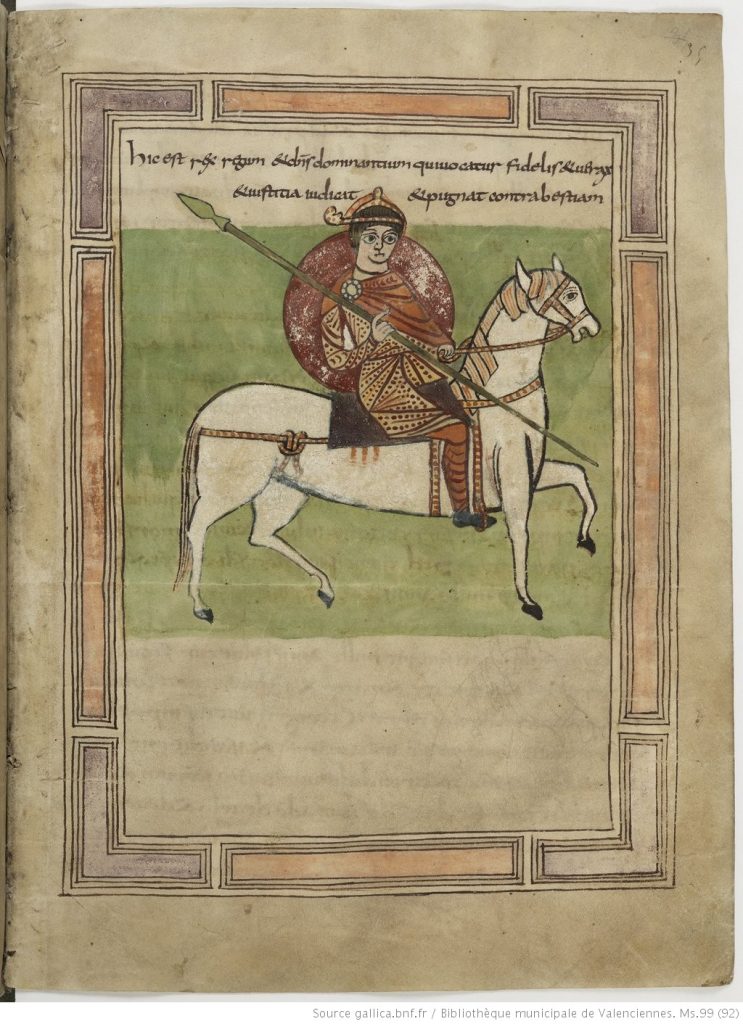 35
hic est rex regum & dn̄s dominantium qui uocatur fidelis & uerax
& iustitia iudicat & pugnat contra bestiam
Source gallica.bnf.fr / Bibliothèque municipale de Valenciennes. Ms.99 (92)